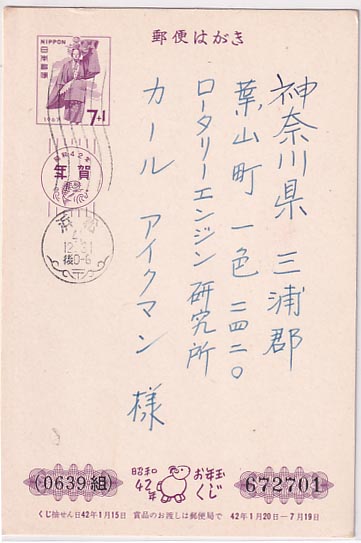 郵便はがき
NIPPON
日本郵便
1967
7+1
昭和42年
年賀
12.31
後0-6
神奈川県 三浦郡
葉山町 一色 二四二〇
ロータリーエンジン研究所
カール アイクマン 様
昭和
42
年
お年玉
くじ
0639組
672701
くじ抽せん日42年1月15日 賞品のお渡しは郵便局で 42年1月20日―7月19日